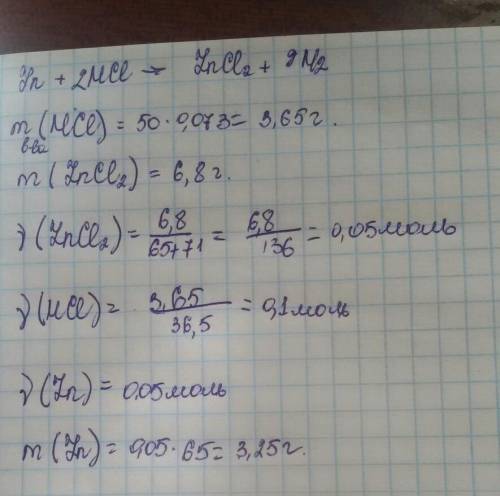 Zn + 2HCl → ZnCl2 + 2H2
m (HCl) = 50 · 0,073 = 3,65 г.
в-ва
m (ZnCl2) = 6,8 г.
ν (ZnCl2) = 6,8 / 65+71 = 6,8 / 136 = 0,05 моль
ν (HCl) = 3,65 / 36,5 = 0,1 моль
ν (Zn) = 0,05 моль
m (Zn) = 0,05 · 65 = 3,25 г.